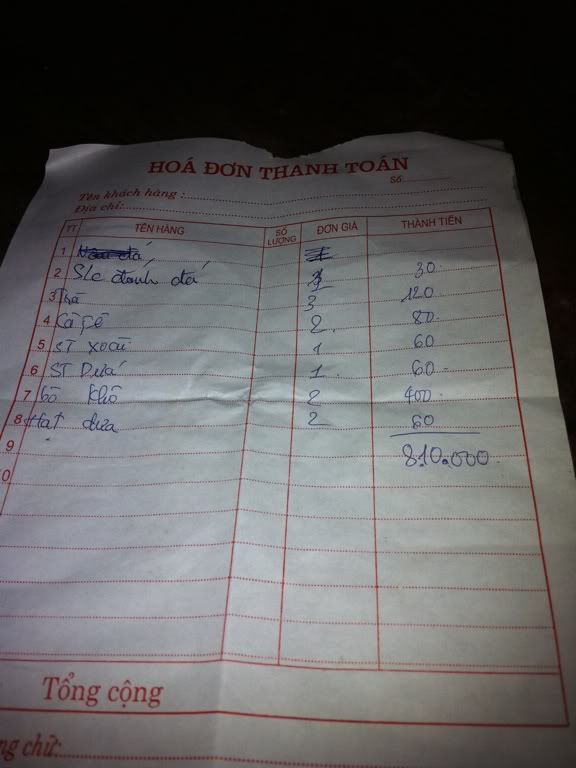 HOÁ ĐƠN THANH TOÁN
Số
Tên khách hàng :
Địa chỉ:
TT TÊN HÀNG SỐ LƯỢNG ĐƠN GIÁ THÀNH TIỀN
1
2 đánh đá 30
3 3 120
4 Cà fê 2 80
5 ST xoài 1 60
6 ST Dừa 1 60
7 bò khô 2 400
8 Hạt dưa 2 60
9 810.000
0
Tổng cộng
ng chữ: